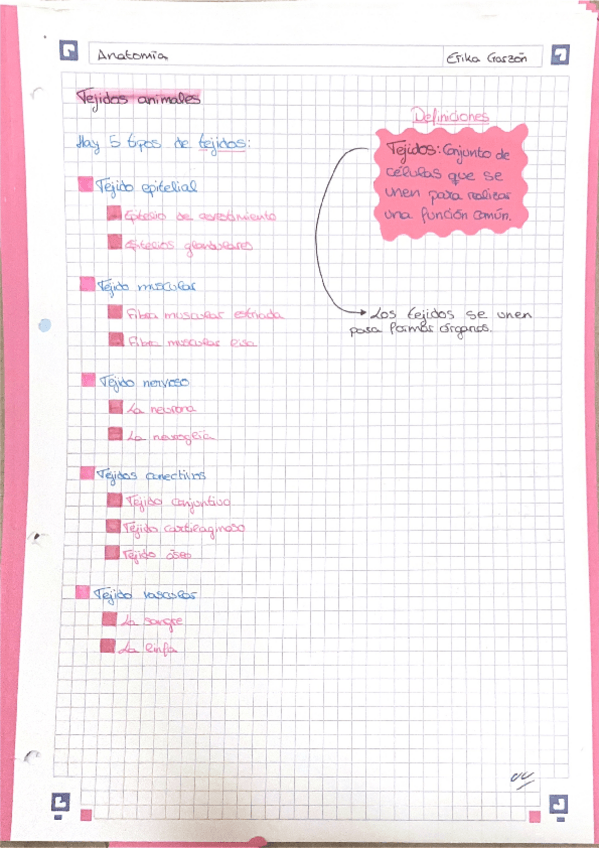 Anatomía
Erika Garzón
Tejidos animales
Hay 5 tipos de tejidos:
Tejido epitelial
Epitelio de revestimiento
Epitelios glandulares
Tejido muscular
Fibra muscular estriada
Fibra muscular lisa
Tejido nervoso
La neurona
La neuroglia
Tejidos conectivos
Tejido conjuntivo
Tejido cartilaginoso
Tejido óseo
Tejido vascular
La sangre
La linfa
Definiciones
Tejidos: Conjunto de
células que se
unen para realizar
una función común.
Los tejidos se unen
para formar órganos.